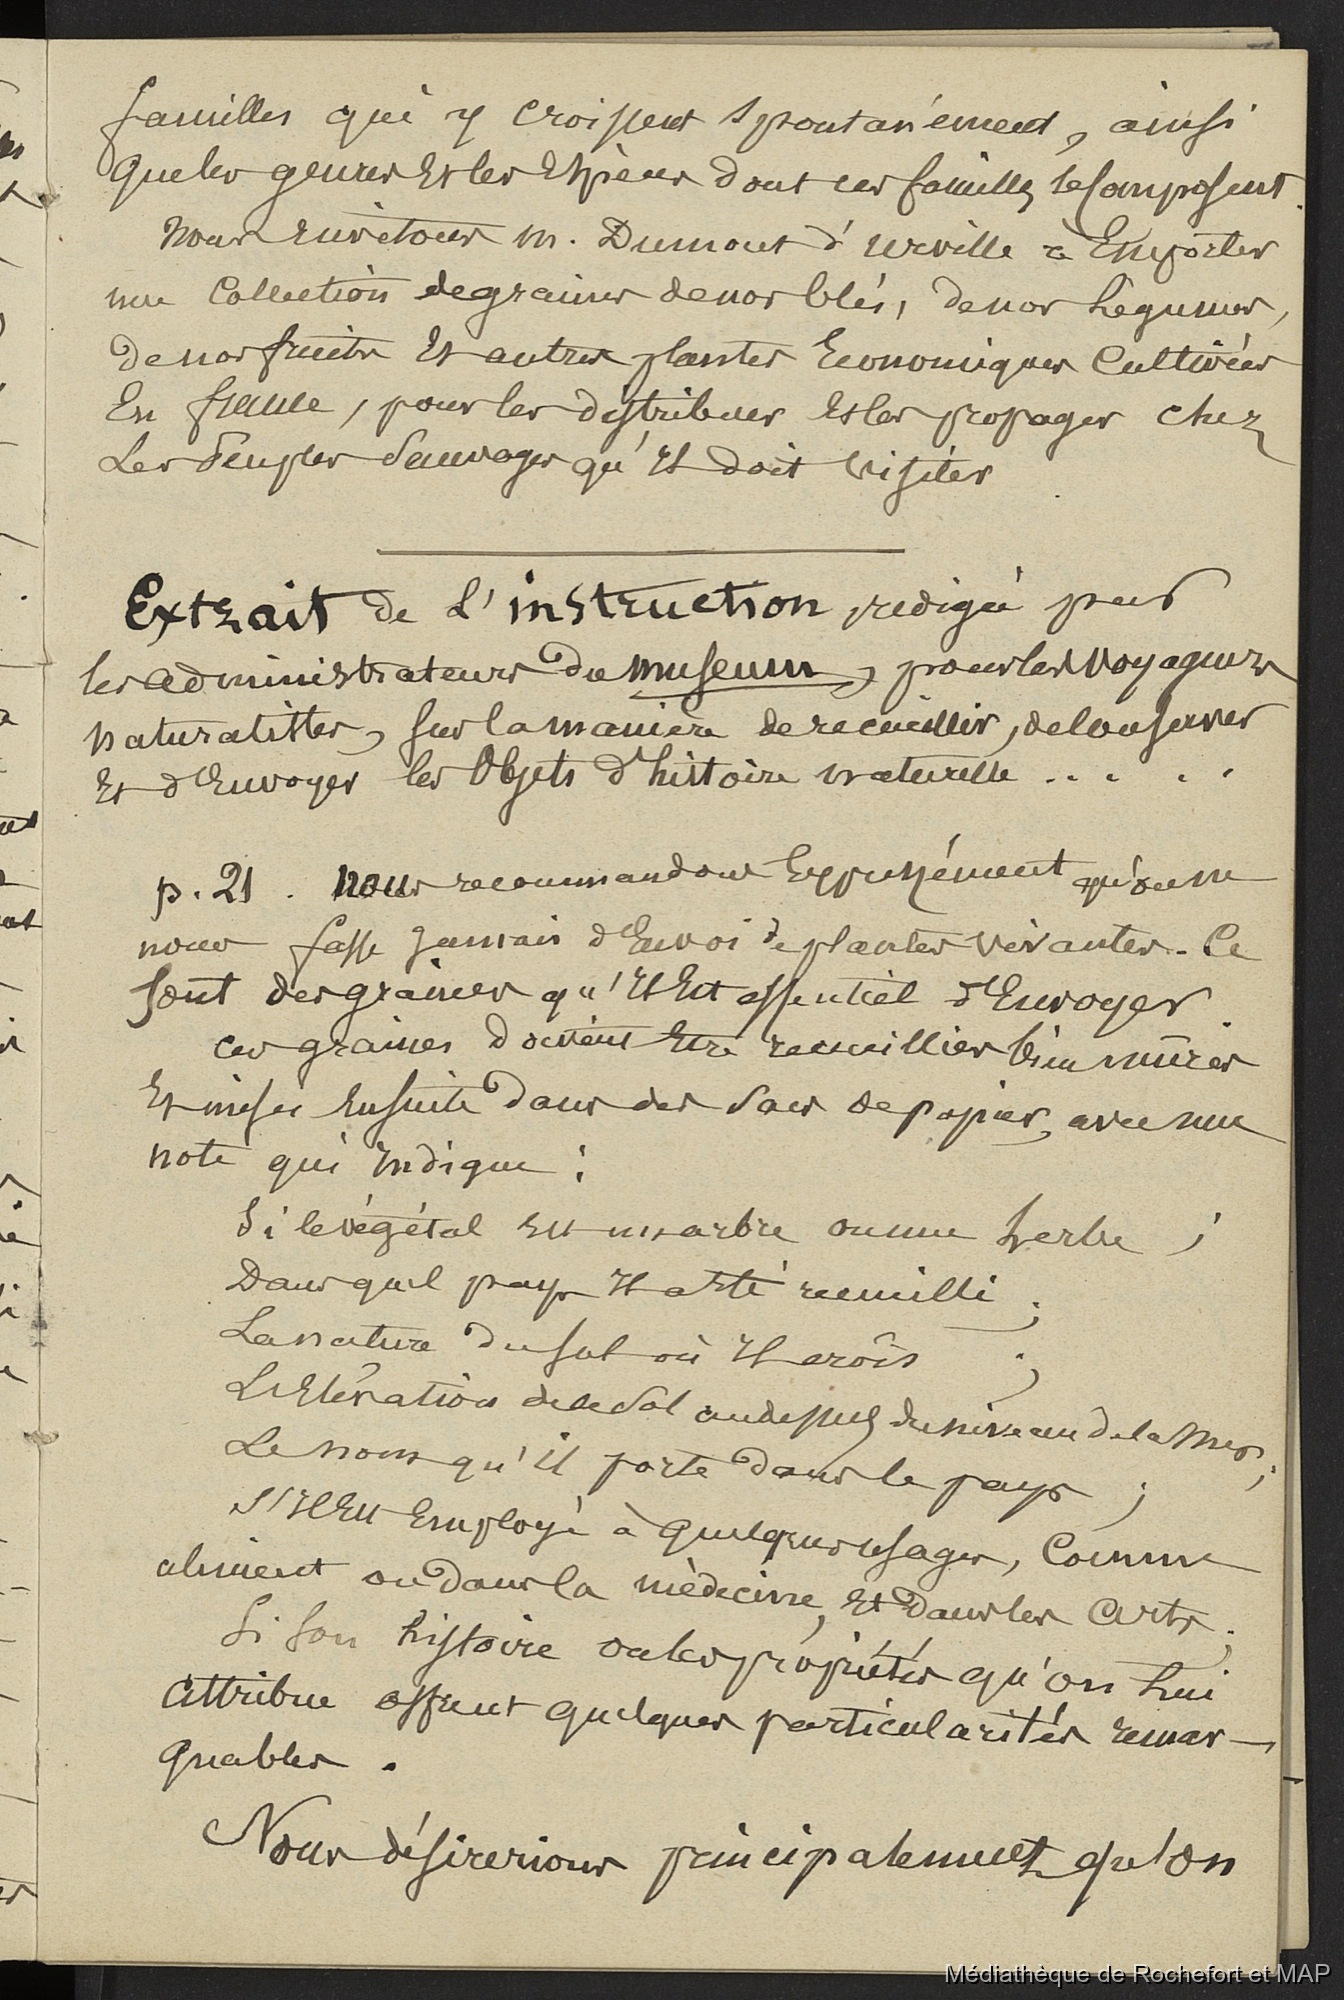 familles qui y croissent spontanément, ainsi
que les genres et les espèces dont ces familles se composent.
Nous invitons M. Dumont d'urville à Emporter
une Collection de graines de nos blés, de nos légumes,
de nos fruits et autres plantes Economiques Cultivées
En france, pour les distribuer et les propager chez
Les Peuples Sauvages qu'il doit visiter
Extrait de L'instruction redigée par
les administrateurs du museum, pour les voyageurs
naturalistes, sur la manière de recueillir, de conserver
et d'Envoyer les Objets d'histoire naturelle .. . . .
p. 21 . Nous recommandons Expressément qu'on ne
nous fasse jamais d'Envoi de plantes vivantes. Ce
sont des graines qu'il est essentiel d'Envoyer.
ces graines doivent Etre recueillies bien mûres
et mises ensuite dans des Sacs de papier, avec une
note qui indique :
Si le végétal est un arbre ou une herbe ;
Dans quel pays il a été recueilli ;
La nature du sol où il croît ;
L'Elévation de ce Sol au dessus du niveau de la mer ;
Le nom qu'il porte dans le pays ;
S'il est Employé à quelques usages, Comme
aliment ou dans la médecine, et dans les Arts ;
Si son histoire ou les propriétés qu'on lui
Attribue offrent quelques particularités remar-
quables .
Nous désirerions principalement qu'on
Médiathèque de Rochefort et MAP